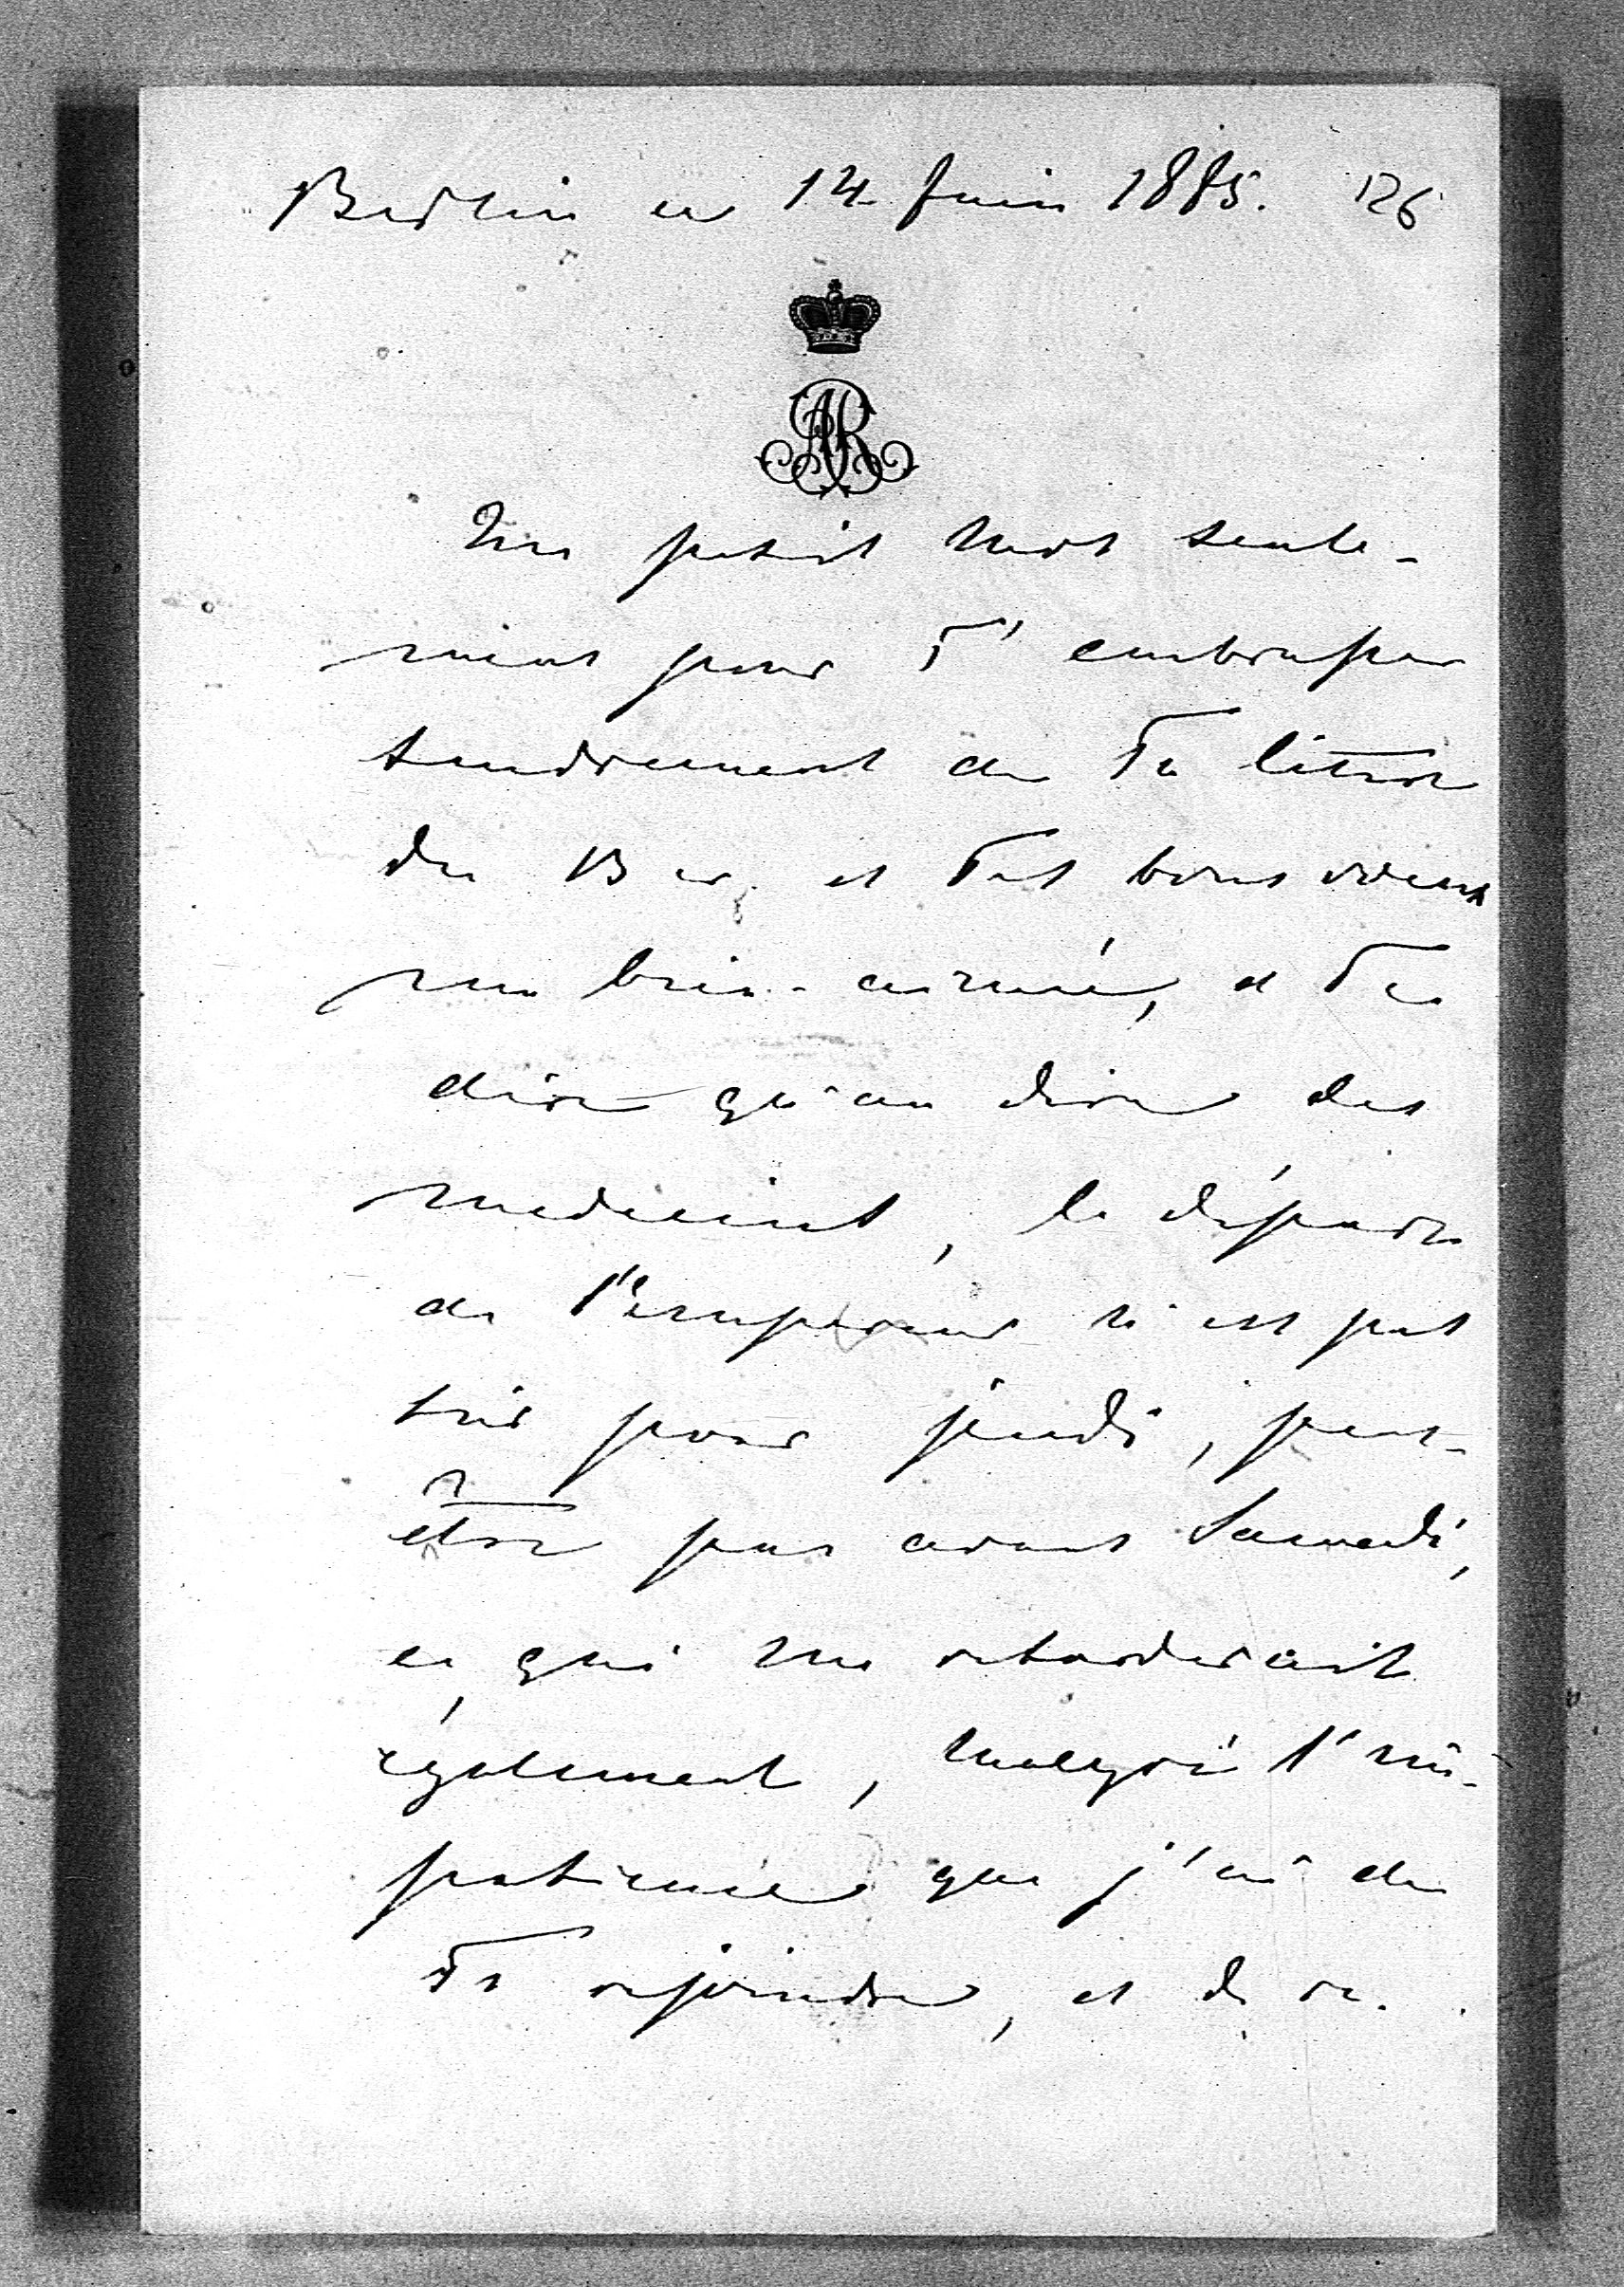 Berlin ce 14 Juin 1885. 126
AR
Un petit mot seule-
ment pour T'embrasser
tendrement de Ta lettre
du 13 cr. et Tes bons voeux
mon bien-aimé, et Te
dire qu'au dire des
medecins, le départ
de l'Empereur n'est pas
sûr pour jeudi, peut-
être pas avant Samedi,
ce qui me retarderait
également, malgré l'im-
patience que j'ai de
Te rejoindre, et de re.